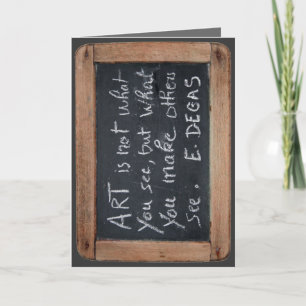 ART is not what
You see, but what
You make others
See. E. DEGAS